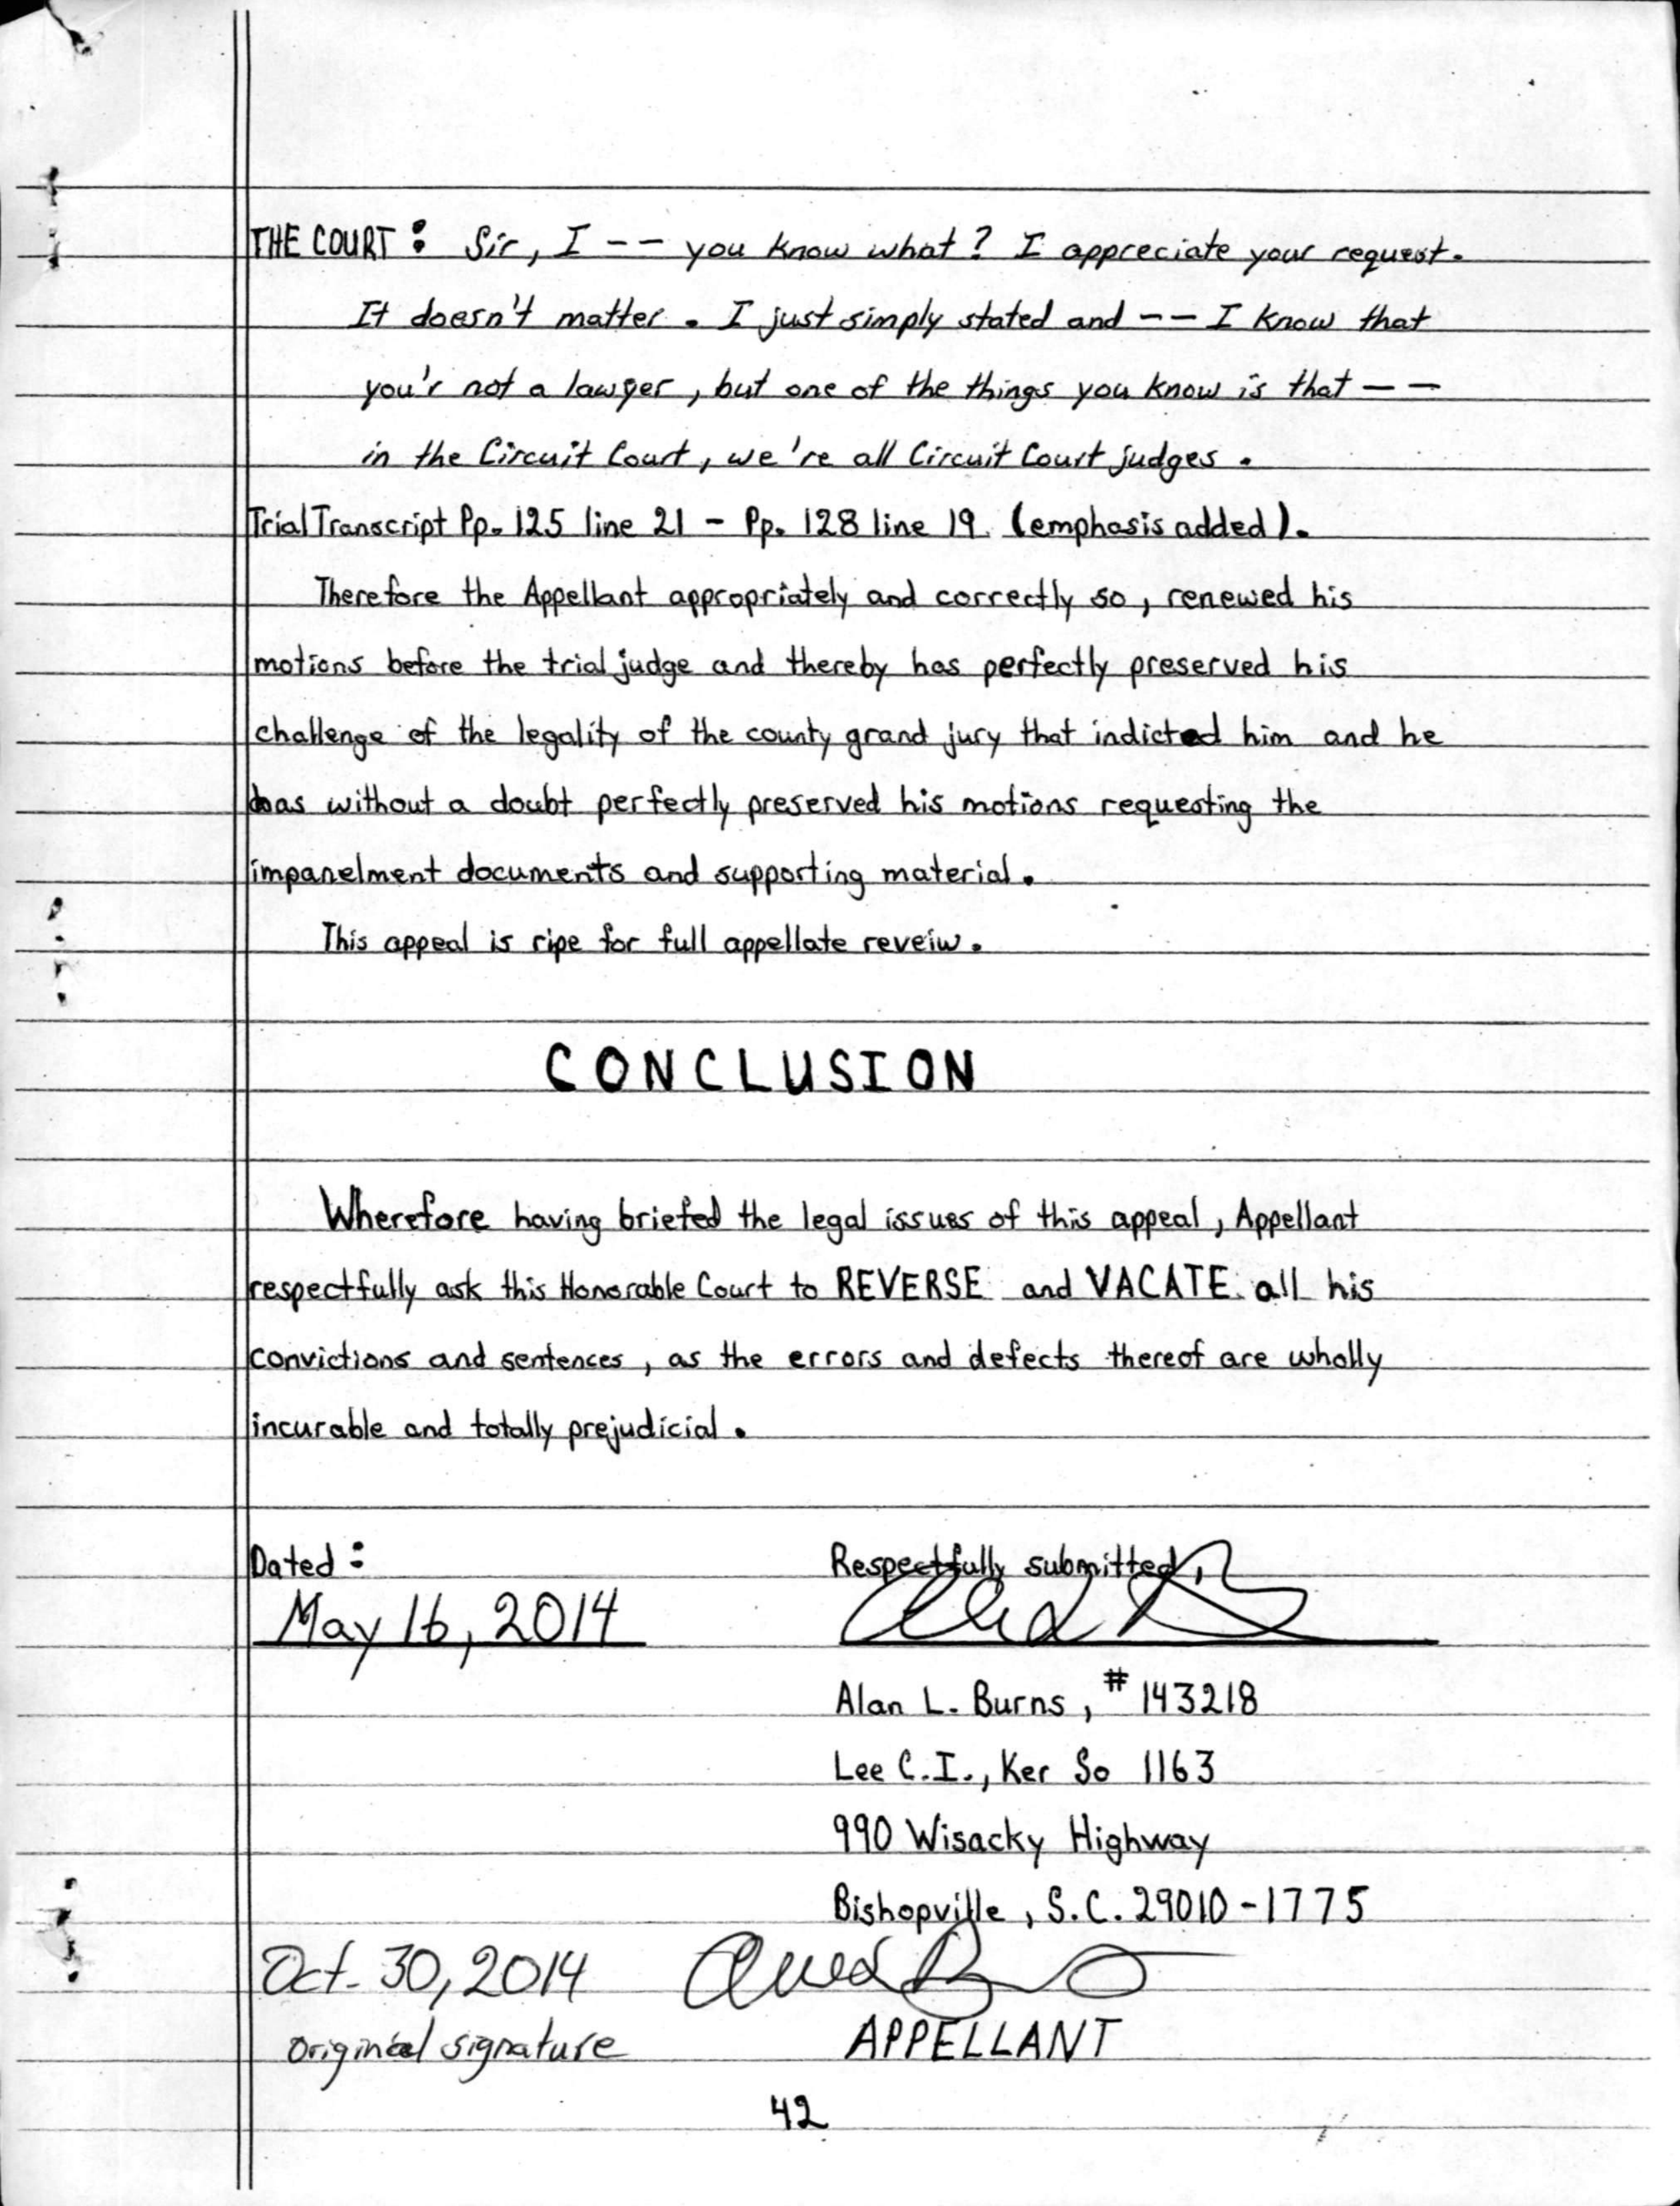 THE COURT: Sir, I -- you know what? I appreciate your request.
It doesn't matter. I just simply stated and -- I know that
you'r not a lawyer, but one of the things you know is that --
in the Circuit Court, we're all Circuit Court judges.
Trial Transcript Pp. 125 line 21 - Pp. 128 line 19 (emphasis added).
Therefore the Appellant appropriately and correctly so, renewed his
motions before the trial judge and thereby has perfectly preserved his
challenge of the legality of the county grand jury that indicted him and he
has without a doubt perfectly preserved his motions requesting the
impanelment documents and supporting material.
This appeal is ripe for full appellate reveiw.
CONCLUSION
Wherefore having briefed the legal issues of this appeal, Appellant
respectfully ask this Honorable Court to REVERSE and VACATE all his
convictions and sentences, as the errors and defects thereof are wholly
incurable and totally prejudicial.
Dated: Respectfully submitted,
May 16, 2014
Alan L. Burns, #143218
Lee C.I., Ker So 1163
990 Wisacky Highway
Bishopville, S.C. 29010-1775
Oct. 30, 2014
original signature APPELLANT
42